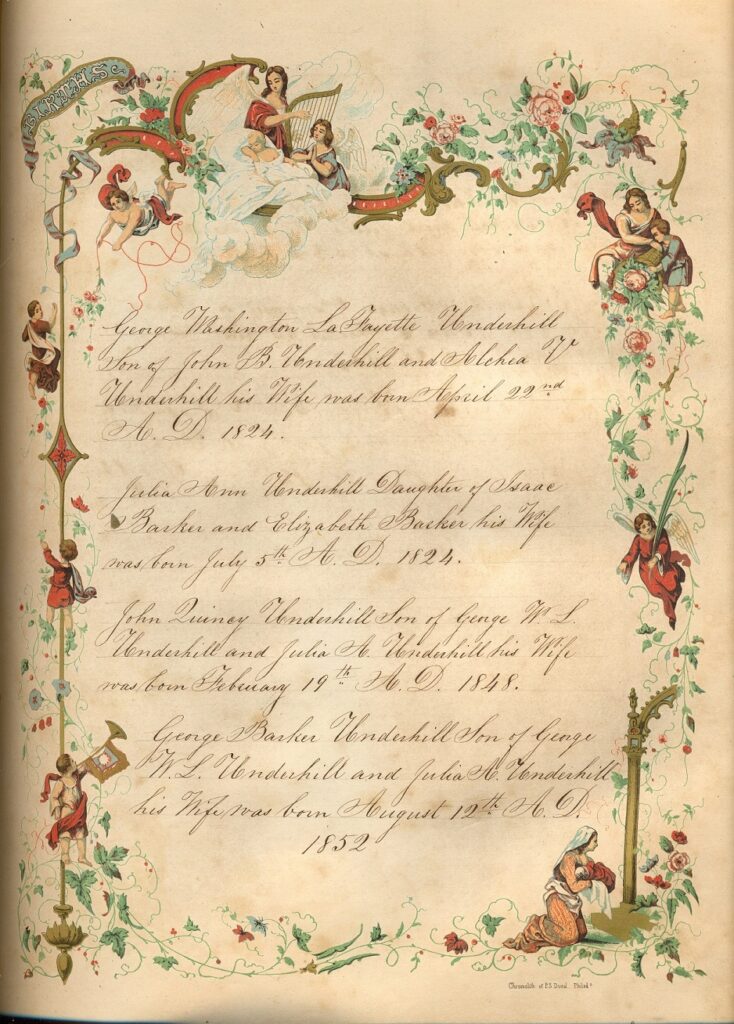 BIRTHS
George Washington LaFayette Underhill
Son of John B. Underhill and Alchea V
Underhill his Wife was born April 22nd
A. D. 1824.
Julia Ann Underhill Daughter of Isaac
Barker and Elizabeth Barker his Wife
was born July 5th A. D. 1824.
John Quincy Underhill Son of George W. L.
Underhill and Julia A. Underhill his Wife
was born February 19th A. D. 1848.
George Barker Underhill Son of George
W. L. Underhill and Julia A. Underhill
his Wife was born August 12th A. D.
1852
Chromolith of P.S. Duval. Philada